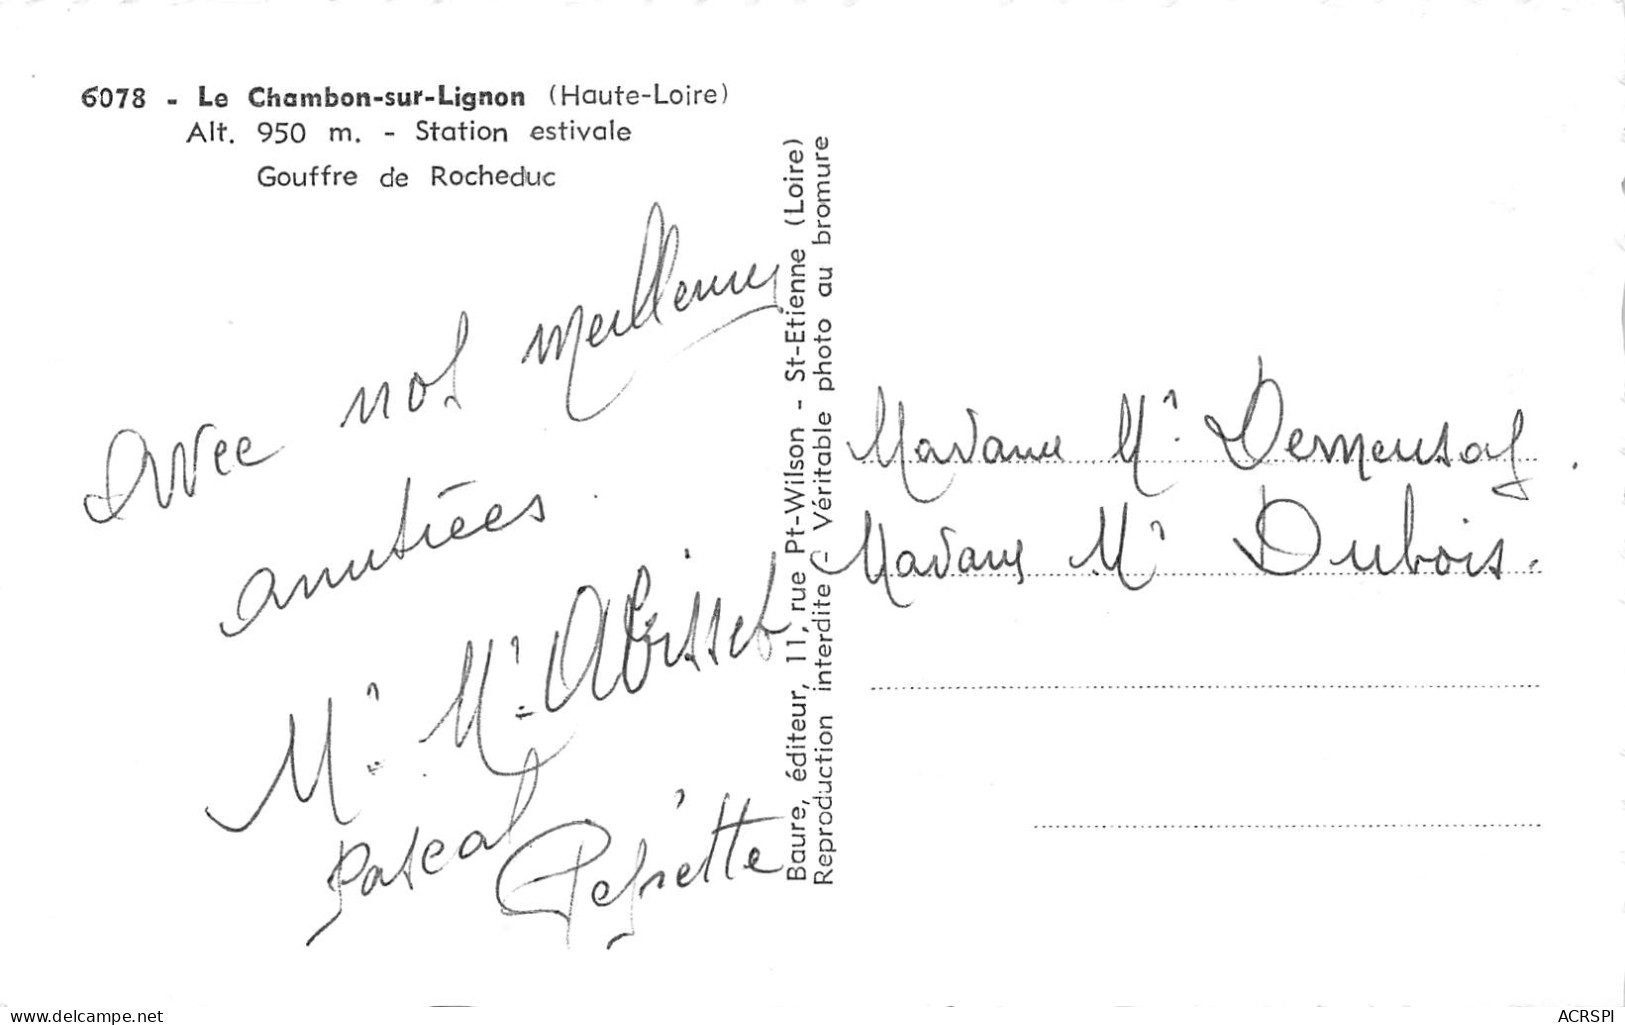 6078 - Le Chambon-sur-Lignon (Haute-Loire)
Alt. 950 m. - Station estivale
Gouffre de Rocheduc
Avec nos meilleures
amitiées.
Mr. Mr.
Pascal
Baure, éditeur, 11, rue Pt-Wilson - St-Etienne (Loire)
Reproduction interdite - Véritable photo au bromure
Madame Mr.
Madame Mr Dubois.
www.delcampe.net
ACRSPI